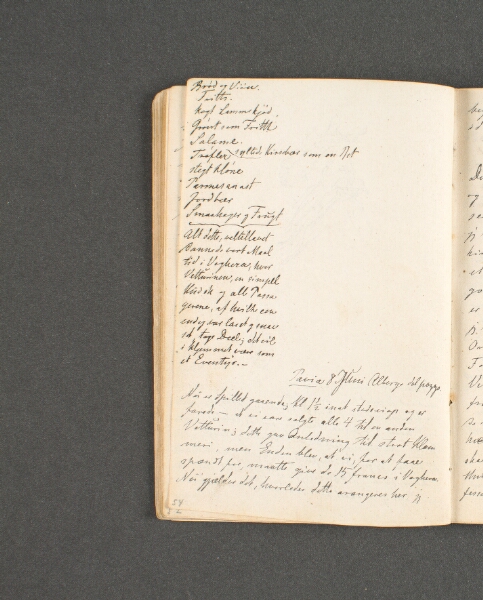 Brød og Viin.
Fritto.
kogt Lammekjød
Grønt som Fritth
Salame.
Trøfler syltede Kirsebær som en Ret
stegt Høne
Parmesanost
Jordbær
Smaakager og Frugt
Alt dette, veltillavet
dannede vort Maal
tid i Voghera, hvor
Vetturinen, en simpel
Kudsk og alle Passa-
gerene, af hvilke een
endog var laset og
tog Deel; det vil
i Hjemmet være som
et Eventyr.
Pavia 8 Juni Albergo del pozzo
Nu er Spillet gaaende; Kl 1½ inat
foran — vi ere solgte alle 4 til en anden
Vetturin; dette gav Anledning til stort Klam
meri, men Enden blev, at vi, for at faae
spændt for maatte give de 15 francs i Voghera
Nu gjælder det, hvorledes dette arrangeres her.
54